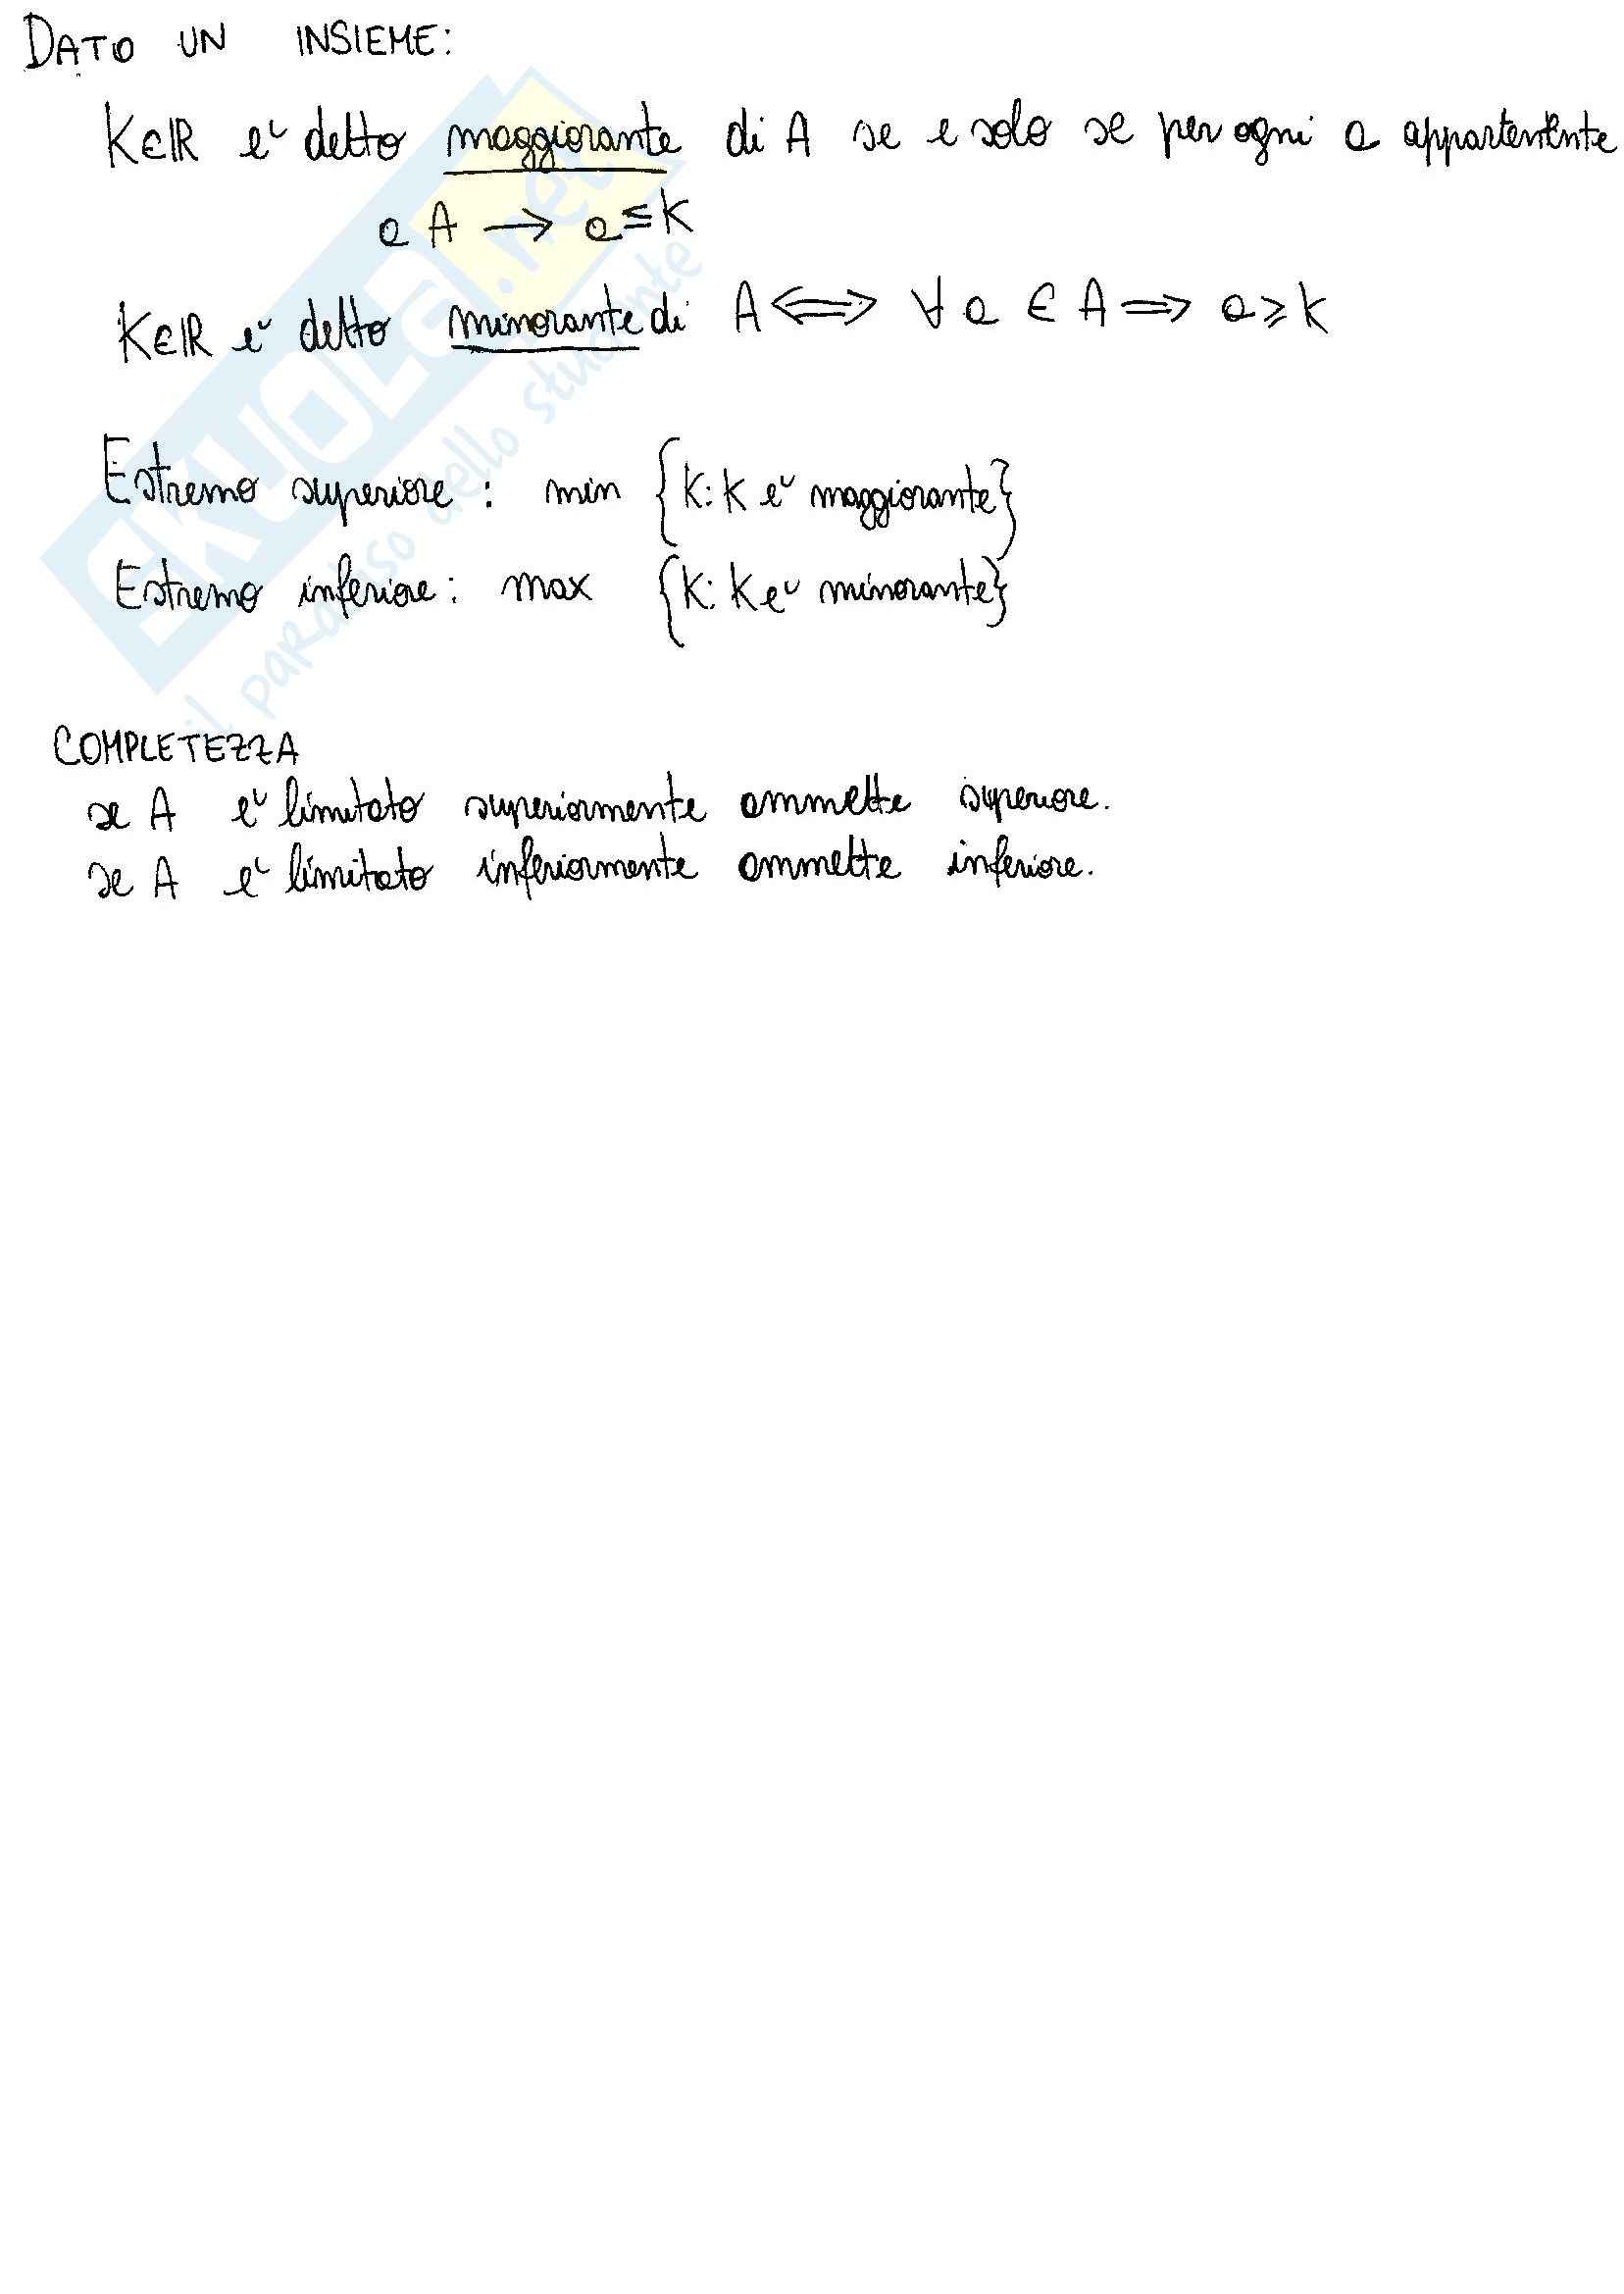 DATO UN INSIEME:
K∈ℝ è detto maggiorante di A se e solo se per ogni a appartenente
a A → a ≤ K
K∈ℝ è detto minorante di A ⟺ ∀ a ∈ A ⟹ a ≥ K
Estremo superiore : min {K: K è maggiorante}
Estremo inferiore : max {K: K è minorante}
COMPLETEZZA
se A è limitato superiormente ammette superiore.
se A è limitato inferiormente ammette inferiore.
SKUOLA.net
il paradiso dello studente